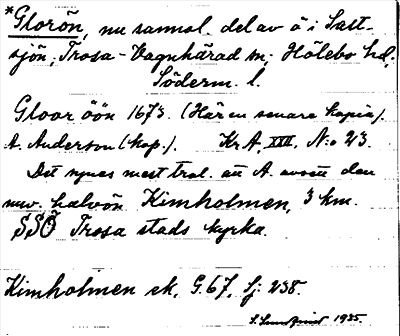 *Glorön, nu sannol. del av ö i Salt-
sjön, Trosa-Vagnhärad sn, Hölebo hd,
Söderm. l.
Gloor öön 1673. (Här en senare kopia).
A. Anderson (kop.). KrA, XXII, N:o 23.
Det synes mest trol. att A. avsett den
nuv. halvön Kimholmen, 3 km.
SSÖ Trosa stads kyrka.
Kimholmen ek. G.67, Sj: 238.
1935.